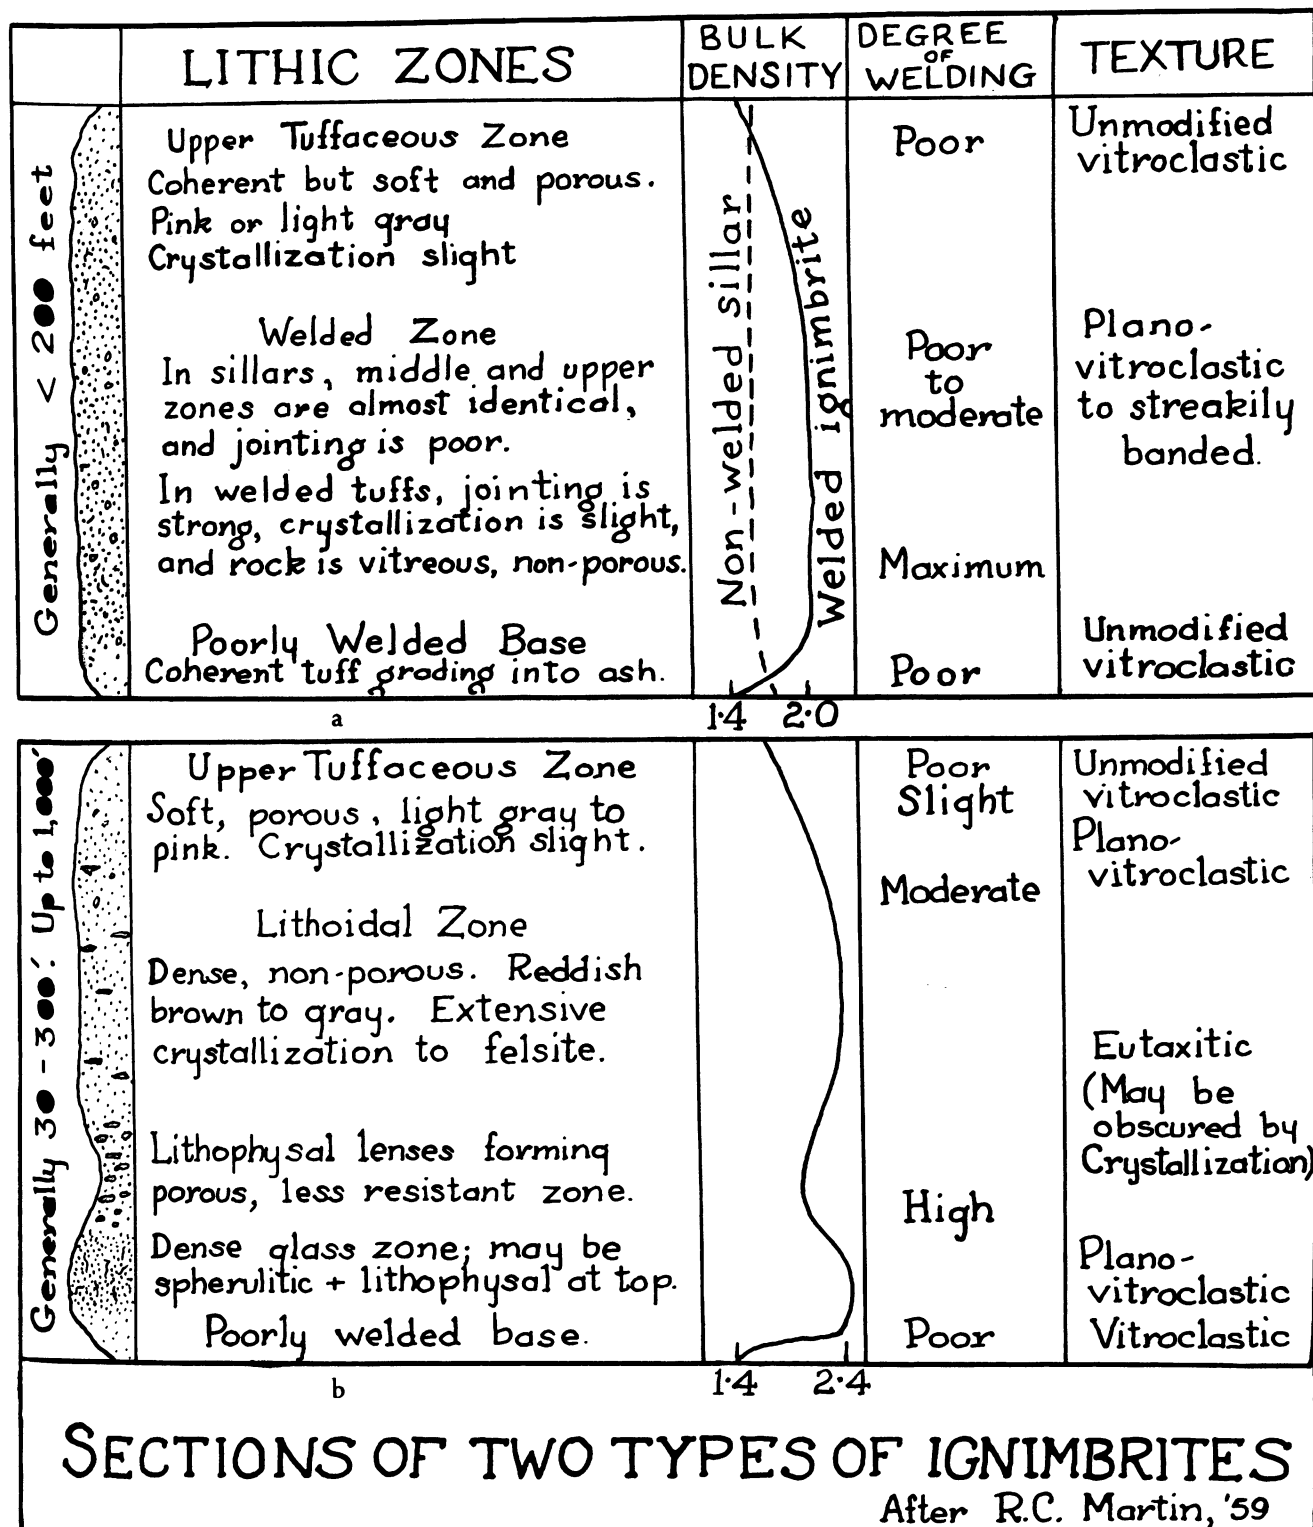 LITHIC ZONES
BULK
DENSITY
DEGREE
OF
WELDING
TEXTURE
Generally < 200 feet
Upper Tuffaceous Zone
Coherent but soft and porous.
Pink or light gray
Crystallization slight
Welded Zone
In sillars, middle and upper
zones are almost identical,
and jointing is poor.
In welded tuffs, jointing is
strong, crystallization is slight,
and rock is vitreous, non-porous.
Poorly Welded Base
Coherent tuff grading into ash.
Non-welded sillar
Welded ignimbrite
Poor
Poor
to
moderate
Maximum
Poor
Unmodified
vitroclastic
Plano-
vitroclastic
to streakily
banded.
Unmodified
vitroclastic
a
1.4 2.0
Generally 30-300'. Up to 1,000'
Upper Tuffaceous Zone
Soft, porous, light gray to
pink. Crystallization slight.
Lithoidal Zone
Dense, non-porous. Reddish
brown to gray. Extensive
crystallization to felsite.
Lithophysal lenses forming
porous, less resistant zone.
Dense glass zone; may be
spherulitic + lithophysal at top.
Poorly welded base.
Poor
Slight
Moderate
High
Poor
Unmodified
vitroclastic
Plano-
vitroclastic
Eutaxitic
(May be
obscured by
Crystallization)
Plano-
vitroclastic
Vitroclastic
b
1.4 2.4
SECTIONS OF TWO TYPES OF IGNIMBRITES
After R.C. Martin, '59